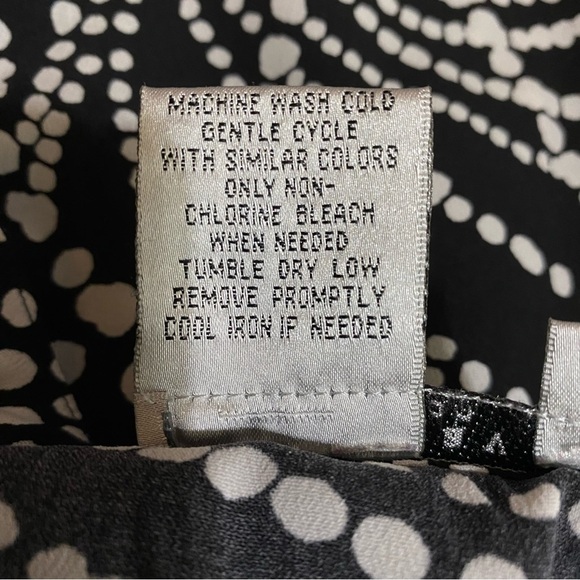 MACHINE WASH COLD
GENTLE CYCLE
WITH SIMILAR COLORS
ONLY NON-
CHLORINE BLEACH
WHEN NEEDED
TUMBLE DRY LOW
REMOVE PROMPTLY
COOL IRON IF NEEDED